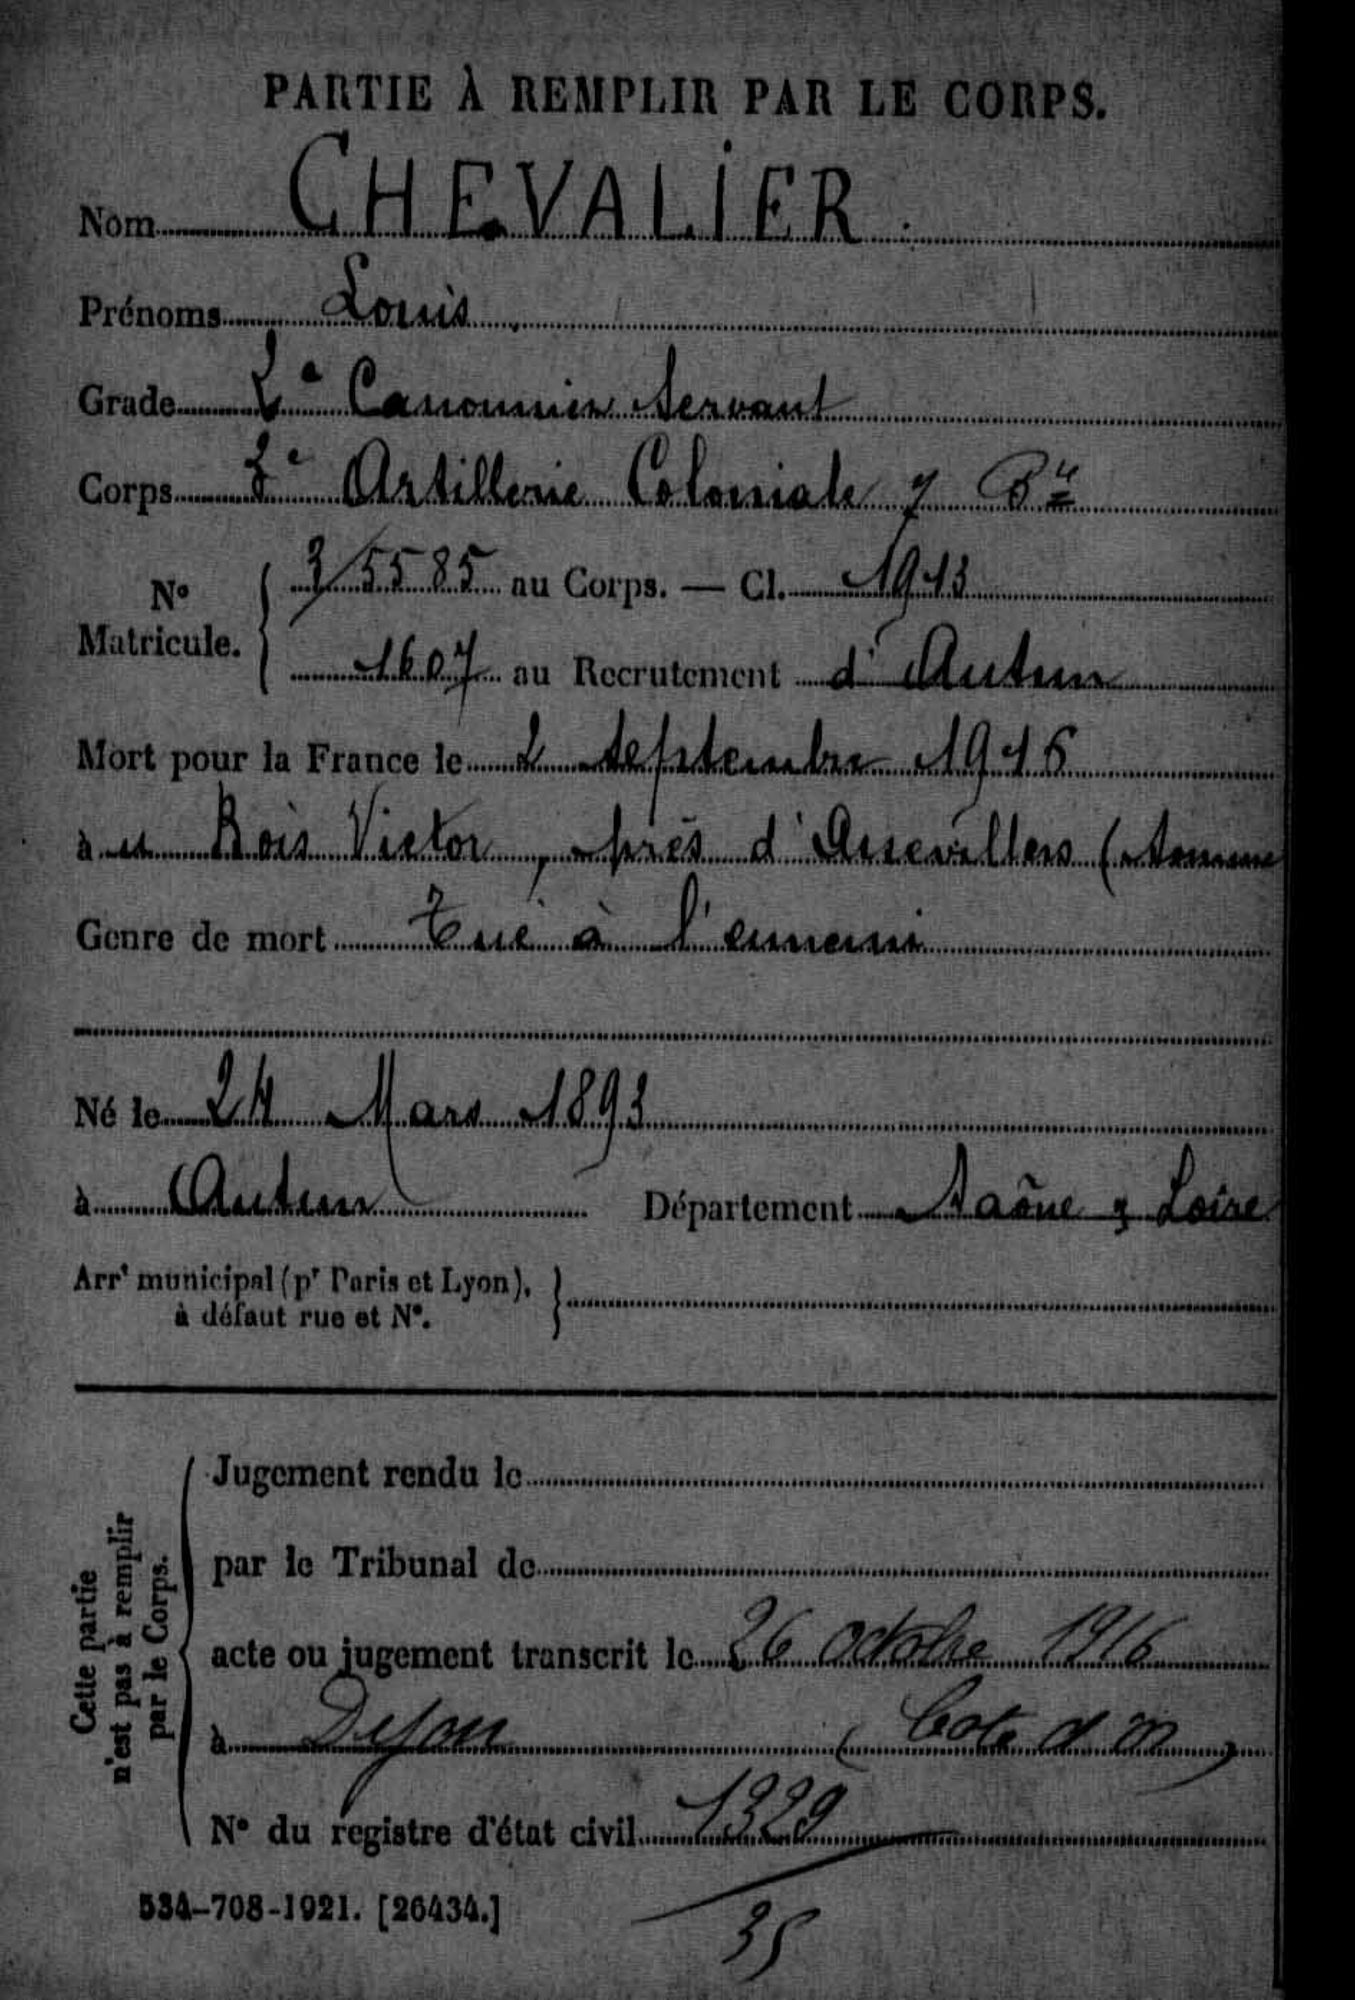 PARTIE À REMPLIR PAR LE CORPS.
Nom CHEVALIER.
Prénoms Louis
Grade 2e Canonnier Servant
Corps 3e Artillerie Coloniale 7 Bie
No Matricule. { 3/5585 au Corps. — Cl. 1913
1607 au Recrutement d'Autun
Mort pour la France le 2 septembre 1916
à Bois Victor, près d'Assevillers (Somme
Genre de mort Tué à l'ennemi
Né le 24 Mars 1893
à Autun Département Saône & Loire
Arrt municipal (pr Paris et Lyon),
à défaut rue et No.
Cette partie
n'est pas à remplir
par le Corps.
Jugement rendu le
par le Tribunal de
acte ou jugement transcrit le 26 octobre 1916
à Dijon (Cote d'or)
No du registre d'état civil 1329
35
534-708-1921. [26434.]